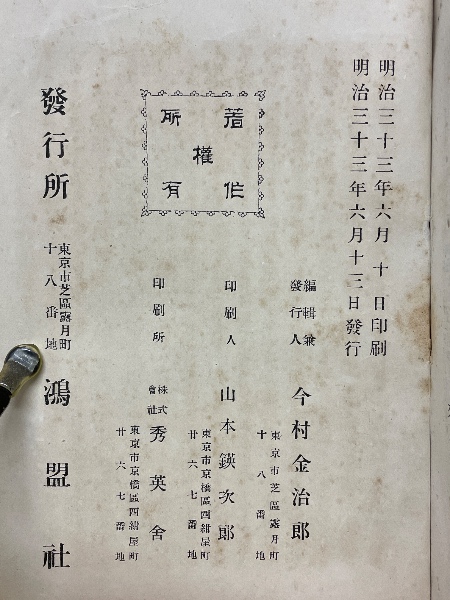 明治三十三年六月十日印刷
明治三十三年六月十三日發行
著作
權
所有
編輯兼
發行人
今村金治郎
東京市芝區露月町
十八番地
印刷人
山本鍈次郎
東京市京橋區西紺屋町
廿六七番地
印刷所
株式
會社
秀英舍
東京市京橋區西紺屋町
廿六七番地
發行所
東京市芝區露月町
十八番地
鴻盟社